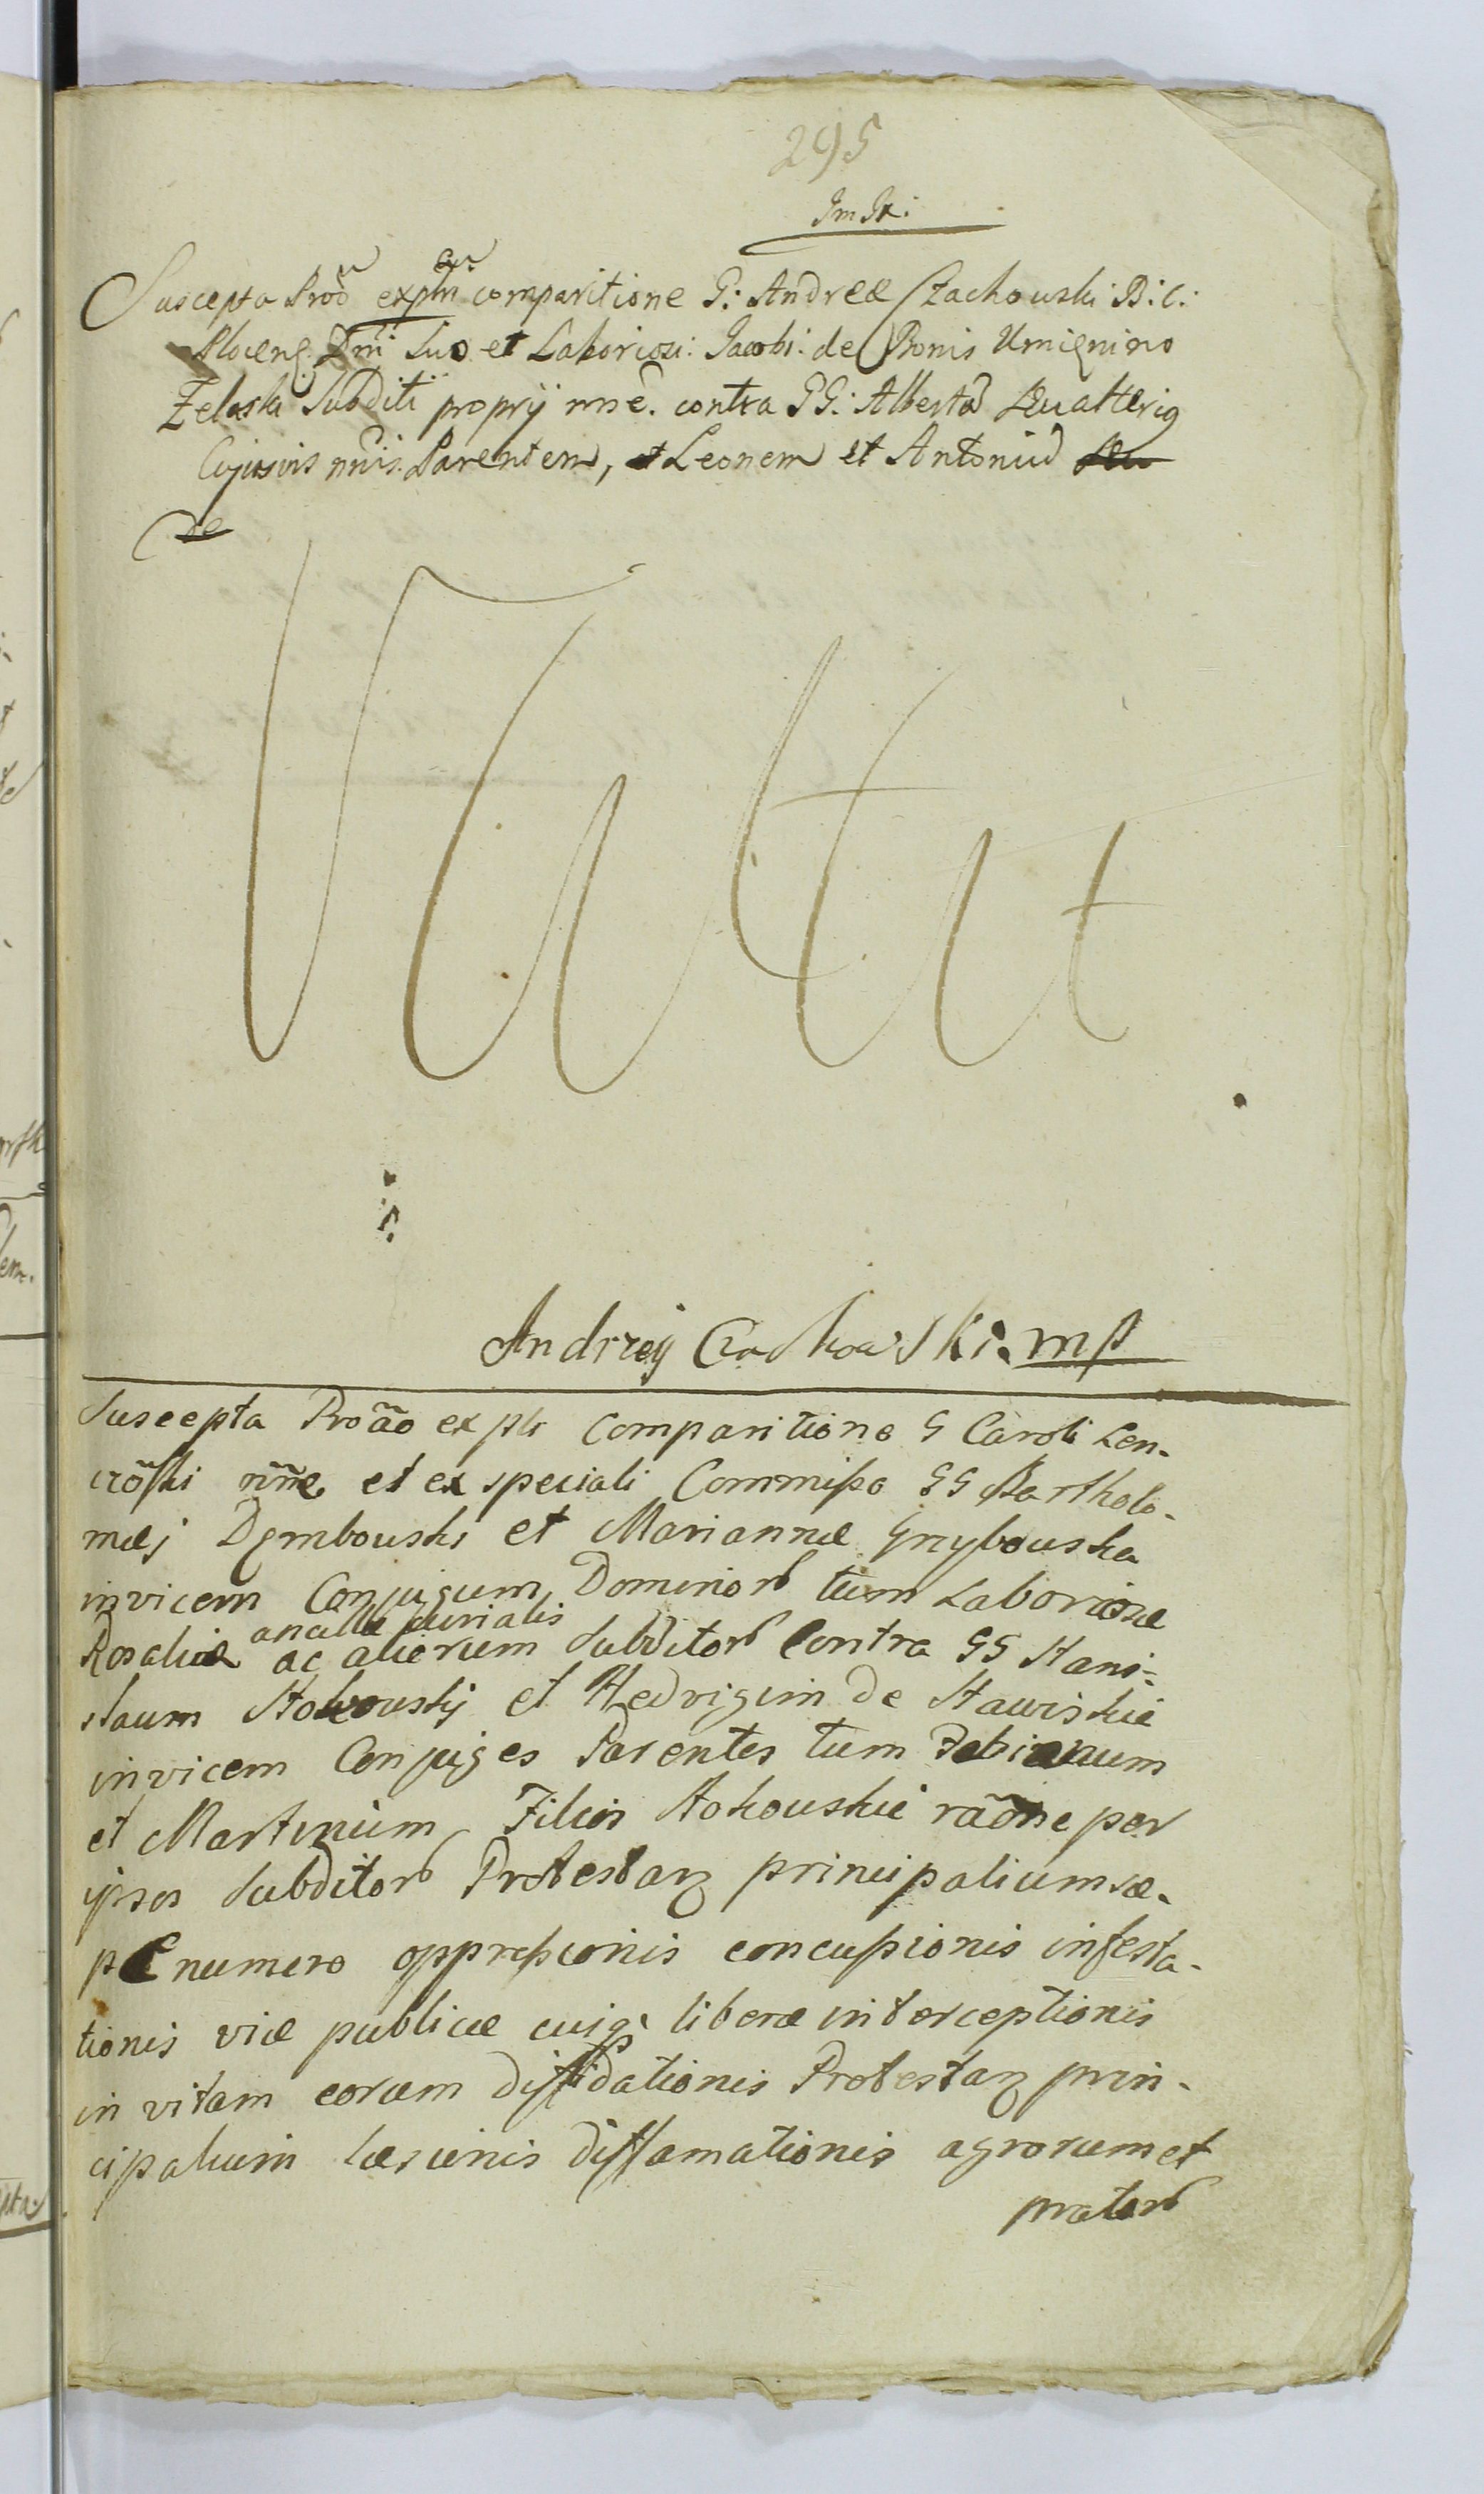 295
Im Ix:
Suscepta Prõõ expłri comparitione G: Andreæ Czachouski B: C:
Plocen: Dñi Suo et Laboriosi: Jacobi: de Bonis Umięnino
Zelaski Subditi proprij nñe. contra GG: Albertũ seu alterig
Cujusvis nñis. Parentem, et Leonem et Antoniũ seu
de
Vacat
Andrzey Czachowski. mp
Suscepta Proãõ ex pti Comparitione G Caroli Len-
crõski nñne et ex speciali Commisso GG Bartholo-
mæj Dembouski et Mariannæ Grzybouska
invicem Conjugum Dominorũ tum Laboriosæ
ancillæ curialis
Rosaliæ ac aliorum Subditorũ Contra GG Stani-
slaum Stokouskj et Hedvigim de Stawiskie
invicem Conjuges Parentes tum Fabianum
et Martinum Filios Stokouskie rãõne per
ipsos Subditorũ Protestanz principalium sæ-
pe numero oppressionis concussionis infesta-
tionis viæ publicæ cuiq; liberæ interceptionis
in vitam eorum diffidationis Protestanz prin-
cipalium læsionis diffamationis agrorum et
pratorũ